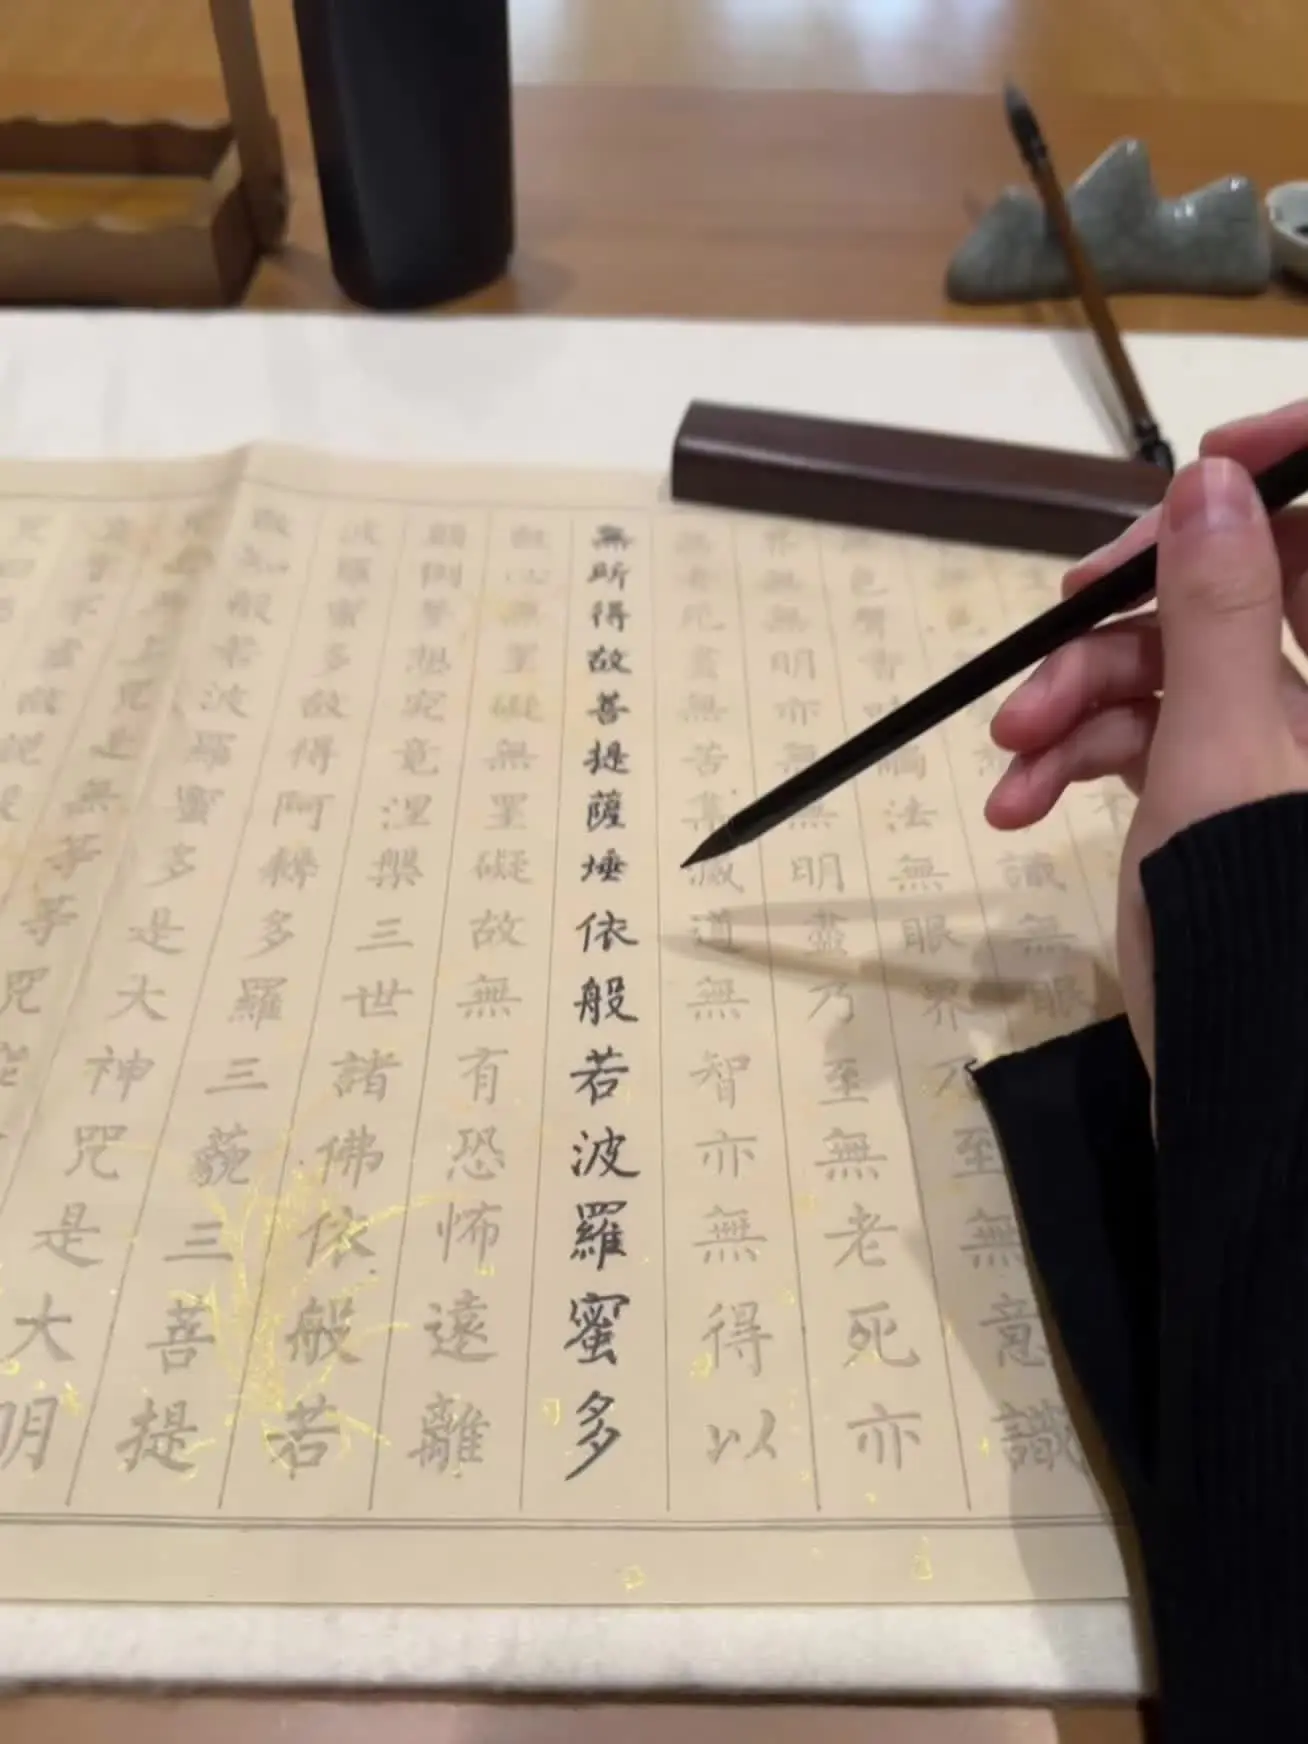 識無眼
無色聲香味觸法無眼界乃至無意識
界無無明亦無無明盡乃至無老死亦
無老死盡無苦集滅道無智亦無得以
無所得故菩提薩埵依般若波羅蜜多
故心無罣礙無罣礙故無有恐怖遠離
顛倒夢想究竟涅槃三世諸佛依般若
波羅蜜多故得阿耨多羅三藐三菩提
故知般若波羅蜜多是大神咒是大明
咒是無上咒是無等等咒能
不虛故說般